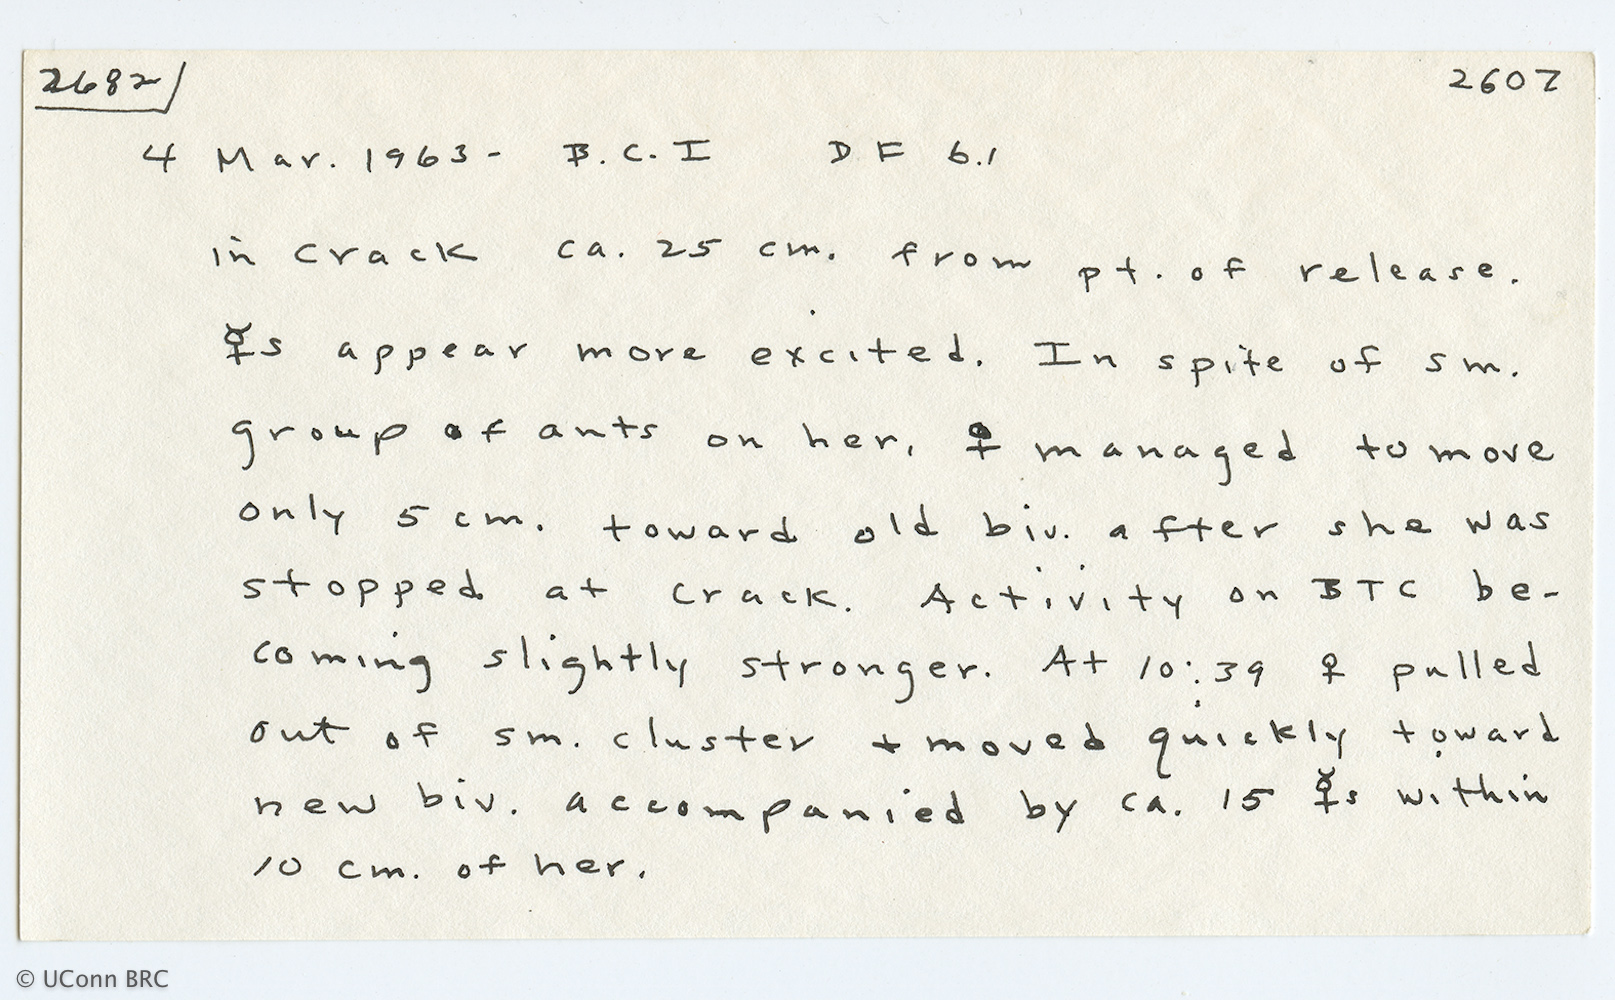 2682 2607
4 Mar. 1963 - B.C.I DF 6.1
in crack ca. 25 cm. from pt. of release.
☿s appear more excited. In spite of sm.
group of ants on her, ♀ managed to move
only 5 cm. toward old biv. after she was
stopped at crack. Activity on BTC be-
coming slightly stronger. At 10:39 ♀ pulled
out of sm. cluster + moved quickly toward
new biv. accompanied by ca. 15 ☿s within
10 cm. of her.
© UConn BRC